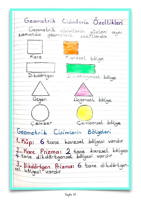 Geometrik Cisimlerin Özellikleri
Geometrik cisimlerin yüzleri aynı
zamanda geometrik
Kare
Karesel bölge
Dikdörtgen
Dikdörtgensel bölge
Üçgen
Üçgensel bölge
Çember
Dairesel bölge
Geometrik Cisimlerin Bölgeleri
1. Küp: 6 tane karesel bölgesi vardır
2. Kare Prizma: 2 tane karesel bölgesi
4 tane dikdörtgensel bölgesi vardır.
3. Dikdörtgen Prizma: 6 tane dikdört-
gensel bölgesi vardır